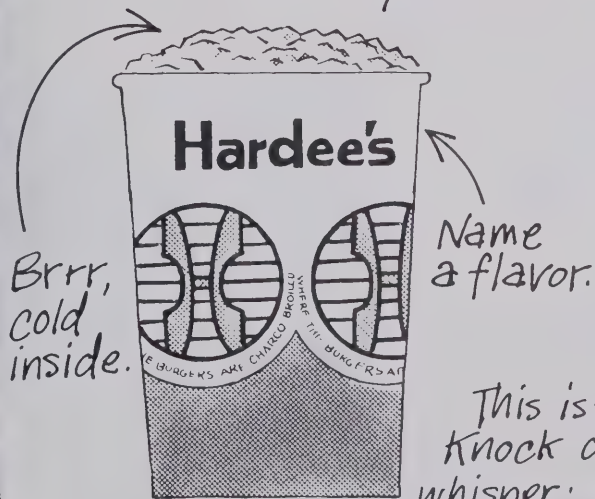 Hardee's
Brrr,
cold
inside.
Name
a flavor.
BURGERS ARE CHARCO BROILED
WHERE THE BURGERS
This is
Knock
whisper: